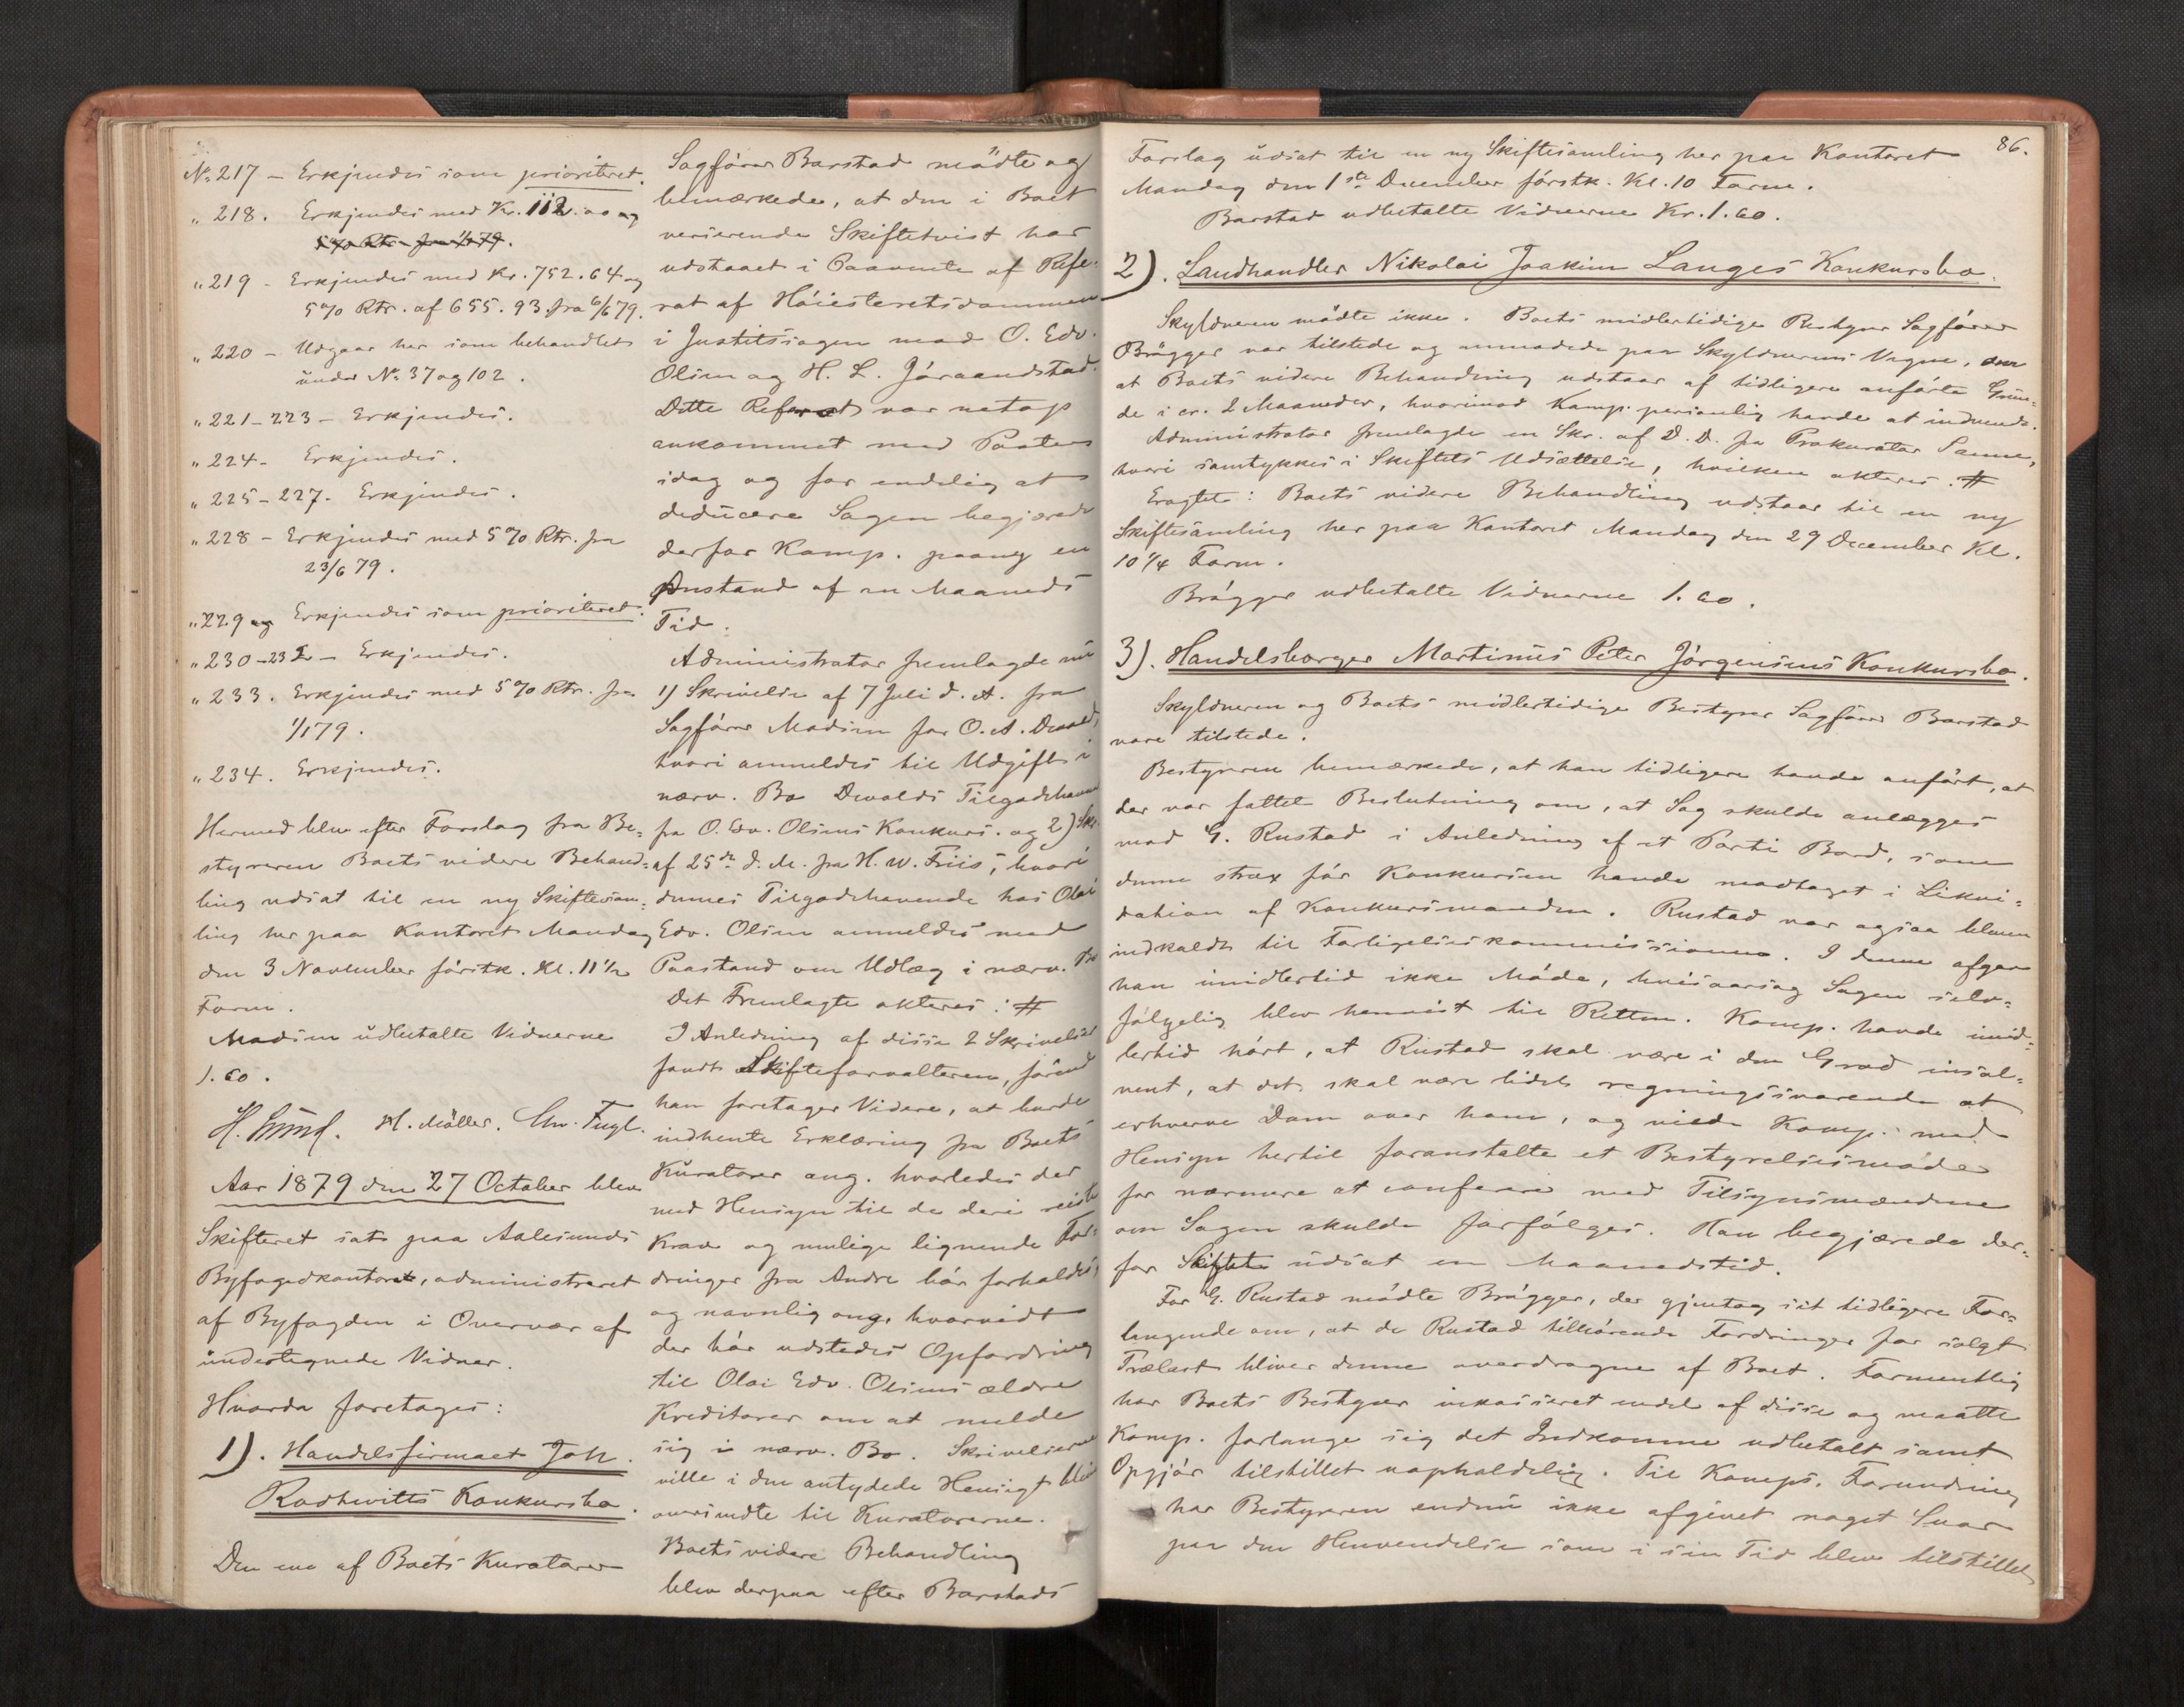 No 217 – Erkjendes som prioriteret.
" 218. Erkjendes med Kr. 112.00 og
5% Rtr. fra 1/1 79.
" 219 – Erkjendes med Kr. 752.64 og
5% Rtr. af 655.93 fra 6/6 79.
" 220 – Udgaar her som behandlet
under No 37 og 102.
" 221–223 – Erkjendes.
" 224 – Erkjendes.
" 225–227. Erkjendes.
" 228 – Erkjendes med 5% Rtr. fra
23/6 79.
" 229 og Erkjendes som prioriteret.
" 230–232 – Erkjendes.
" 233. Erkjendes med 5% Rtr. fra
1/1 79.
" 234. Erkjendes.
Hermed blev efter Forslag fra Be-
styreren Boets videre Behand-
ling udsat til en ny Skiftesam-
ling her paa Kontoret Mandag
den 3 November førstk. Kl. 11 1/2
Form.
Madsen udbetalte Vidnerne
1.60.
H. Møller. Chr. Fugl.
Aar 1879 den 27 October blev
Skifteret sat paa Aalesunds
Byfogedkontoret, administreret
af Byfogden i Overvær af
undertegnede Vidner.
Hvorda foretages:
1). Handelsfirmaet Joh.
Rodtwitts Konkursbo.
Den ene af Boets Kuratorer
Sagfører Barstad mødte og
bemærkede, at den i Boet
verserende Skiftetvist har
udstaaet i Paavente af Refe-
rat af Høiesteretsdommen
i Justitssagen mod O. Edv.
Olsen og H. L. Jøraandstad.
Dette Referat var netop
ankommet med Posten
idag og for endelig at
deducere Sagen begjærede
derfor Komp. paany en
Anstand af en Maaneds
Tid.
Administrator fremlagde nu
1) Skrivelse af 7 Juli d. A. fra
Sagfører Madsen for O. A. Devold,
hvori anmeldes til Udgift i
nærv. Bo Devolds Tilgodehavende
fra O. Edv. Olsens Konkurs. og 2) Skr.
af 25de d. M. fra H. W. Friis, hvori
dennes Tilgodehavende hos Olai
Edv. Olsen anmeldes med
Paastand om Udlæg i nærv. Bo
Det Fremlagte akteres: #
I Anledning af disse 2 Skrivelser
fandt Skifteforvalteren, førend
han foretager Videre, at burde
indhente Erklæring fra Boets
Kuratorer ang. hvorledes der
med Hensyn til de deri reiste
Krav og mulige lignende For-
dringer fra Andre bør forholdes,
og navnlig ang. hvorvidt
der bør udstedes Opfordring
til Olai Edv. Olsens ældre
Kreditorer om at melde
sig i nærv. Bo. Skrivelserne
ville i den antydede Hensigt blive
oversendte til Kuratorerne.
Boets videre Behandling
blev derpaa efter Barstads
86.
Forslag udsat til en ny Skiftesamling her paa Kontoret
Mandag den 1ste December førstk. Kl. 10 Form.
Barstad udbetalte Vidnerne Kr. 1.60.
2). Landhandler Nikolai Joakim Langes Konkursbo.
Skyldneren mødte ikke. Boets midlertidige Bestyrer Sagfører
Brøgger var tilstede og anmodede paa Skyldnerens Vegne,
at Boets videre Behandling udstaar af tidligere anførte Grun-
de i cr. 2 Maaneder, hvorimod Komp. personlig havde at indvende.
Administrator fremlagde en Skr. af D. D. fra Prokurator Sanne,
hvori samtykkes i Skiftets Udsættelse, hvilken akteres. #
Eragtet: Boets videre Behandling udstaar til en ny
Skiftesamling her paa Kontoret Mandag den 29 December Kl.
10 1/4 Form.
Brøgger udbetalte Vidnerne 1.60.
3). Handelsborger Martinus Peter Jørgensens Konkursbo.
Skyldneren og Boets midlertidige Bestyrer Sagfører Barstad
vare tilstede.
Bestyreren bemærkede, at han tidligere havde anført, at
der var fattet Beslutning om, at Sag skulde anlægges
mod G. Rustad i Anledning af et Parti Bord, som
denne strax før Konkursen havde modtaget i Likvi-
dation af Konkursmanden. Rustad var ogsaa bleven
indkaldt til Forligelseskommissionen. I denne afgav
han imidlertid ikke Møde, hvisaarsag Sagen selv-
følgelig blev henvist til Retten. Komp. havde imid-
lertid hørt, at Rustad skal være i den Grad insol-
vent, at det skal være lidet regningssvarende at
erhverve Dom over ham, og vilde Komp. med
Hensyn hertil foranstalte et Bestyrelsesmøde
for nærmere at conferere med Tilsynsmændene
om Sagen skulde forfølges. Han begjærede der-
for Skiftet udsat en Maanedstid.
For G. Rustad mødte Brøgger, der gjentog sit tidligere For-
langende om, at de Rustad tilhørende Fordringer for solgt
Trælast bliver denne overdragne af Boet. Formentlig
har Boets Bestyrer inkasseret endel af disse og maatte
Komp. forlange sig det Indkomne udbetalt samt
Opgjør tilstillet uopholdelig. Til Komps. Forundring
har Bestyreren endnu ikke afgivet noget Svar
paa den Henvendelse som i sin Tid blev tilstillet